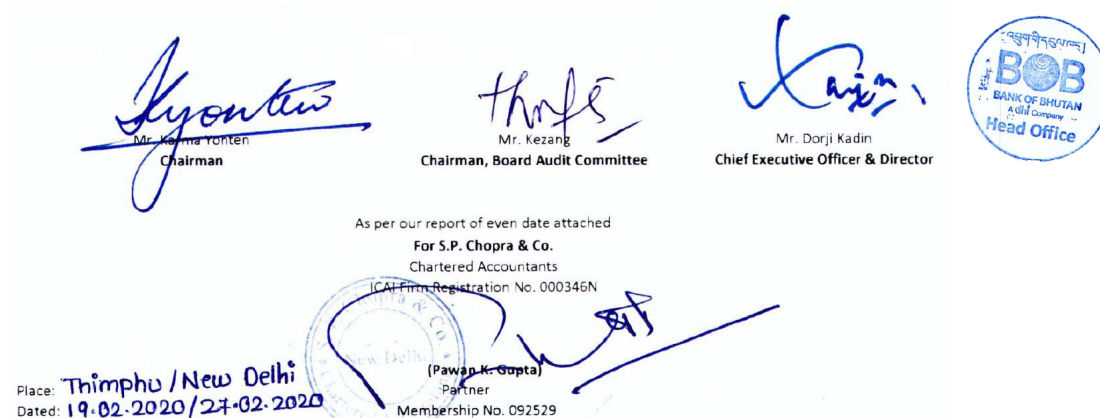 Kyonten
Mr. Karma Yonten
Chairman
Mr. Kezang
Chairman, Board Audit Committee
Mr. Dorji Kadin
Chief Executive Officer & Director
BOB
BANK OF BHUTAN
A dhi Company
Head Office
As per our report of even date attached
For S.P. Chopra & Co.
Chartered Accountants
ICAI Firm Registration No. 000346N
Chopra & Co.
New Delhi
(Pawan K. Gupta)
Partner
Membership No. 092529
Place: Thimphu / New Delhi
Dated: 19.02.2020/27.02.2020